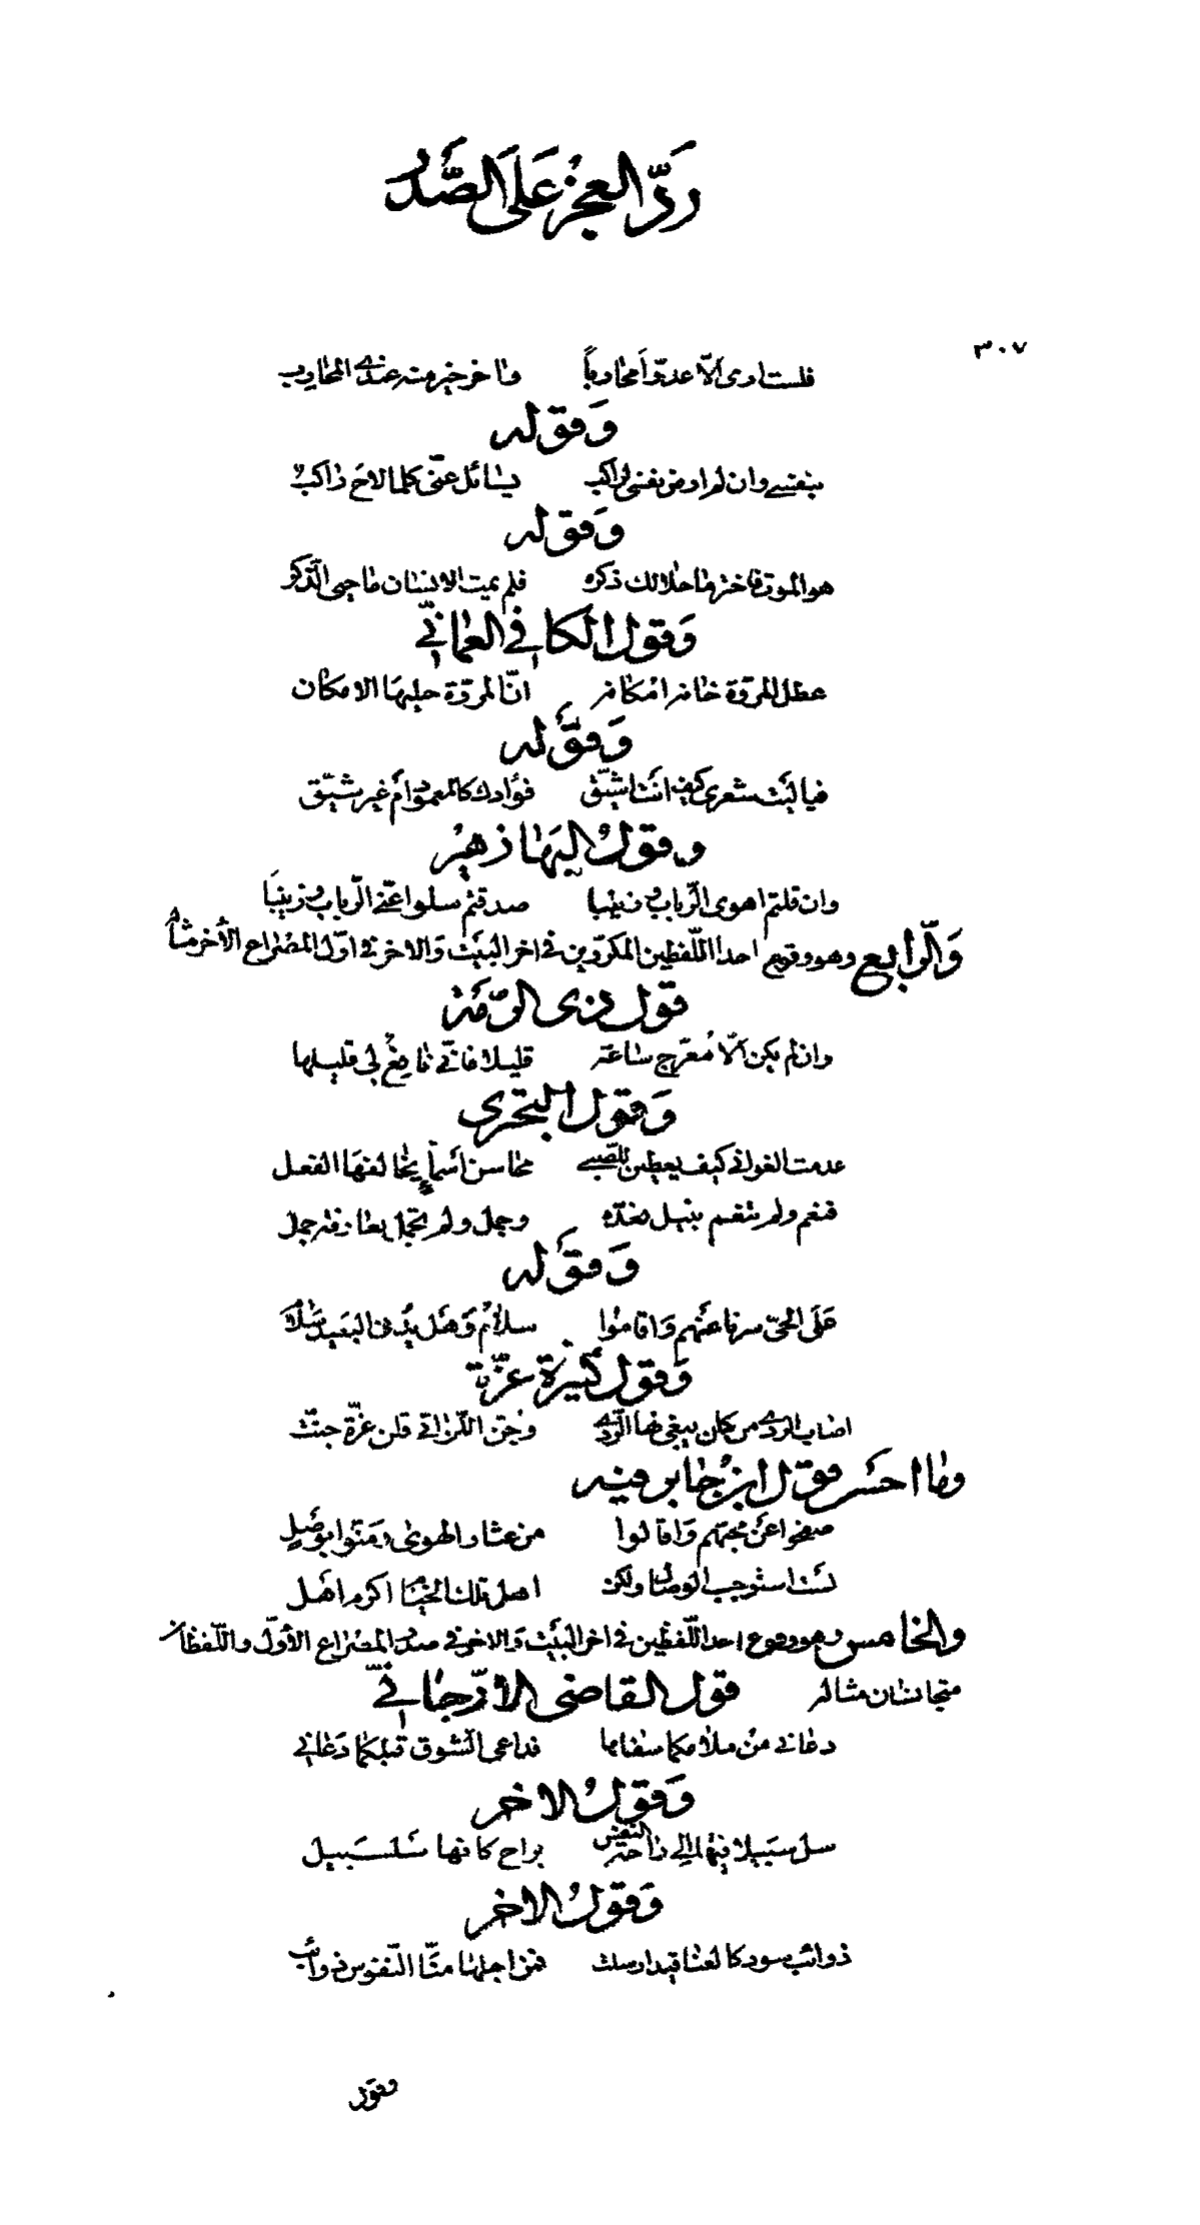 رَدُّ العجُز عَلَى الصَّدْر
٣٠٧
فلست ارى الّا عدوّاً محارباً واخر خير منه عندي المحارب
وَقوله
بنفسي وان لم ارض نفسي لراكب يسائل عنّي كلما لاحَ راكبُ
وَقوله
هو الموت فاختر ما حلا لك ذكره فلم يمت الانسان ما حيى الذّكر
وَقول الكافي العماني
عطل المروّة خانه امكانه انّ المروّة حليهَا الامكان
وَقَوله
فيا ليَت شعرى كيف انتَ اشيّق فؤادك كالمعمود أم غير شيّق
وقولُ البهَا زهير
وان قلتم اهوى الرّباب وزينبا صدقتم سلوا عنّي الرّباب وزينبَا
وَالرّابع وهو وقوع احد اللّفظين المكرّرين في اخر البيَت وَالاخر في اوّل المصراع الأخر مثاله
قول ذى الرّمّة
وان لم يكن الّا مُعرّج ساعة قليلا فانّي نافِعٌ لي قليلها
وَقول البحترى
عدمت الغواني كيف يعطين للصّبي محاسن اسَماء يخالفهَا الفعل
فنعم ولم تنعم بنيل نعدّه وجمل ولم تجمل بعارفة جمل
وَقَوله
عَلَى الحيّ سرنا عَنهم وَاقاموا سلامٌ وَهَل يُدنى البَعيد سَلام
وَقول كثيرة عزّة
اصاب الردى من كان يبغي لها الرّدى وجُنّ اللّواتي قلن عزّة جنّت
وما احسَن قول ابن جابر فيه
صفحوا عَن محبّهم وَاقالوا من عثار الهوى ومَنّوا بوَصَل
لسَت استوجب الوصال ولكن اهل تلك الخيام اكرم اهَل
والخامس وهو وقوع احد اللّفظين في اخر البيَت وَالاخر في صدر المصراع الأوّل واللّفظان
متجانسان مثاله قول القاضى الارّجاني
دعاني من ملامكما سفاها فداعى الشوق قبلكما دَعاني
وَقولُ الاخر
سل سبيلا فيها الى راحة النفس براح كانها سَلسَبيل
وَقولُ الاخر
ذوائب سود كالعناقيد ارسلت فمن اجلها منّا النّفوس ذوائب
وقول